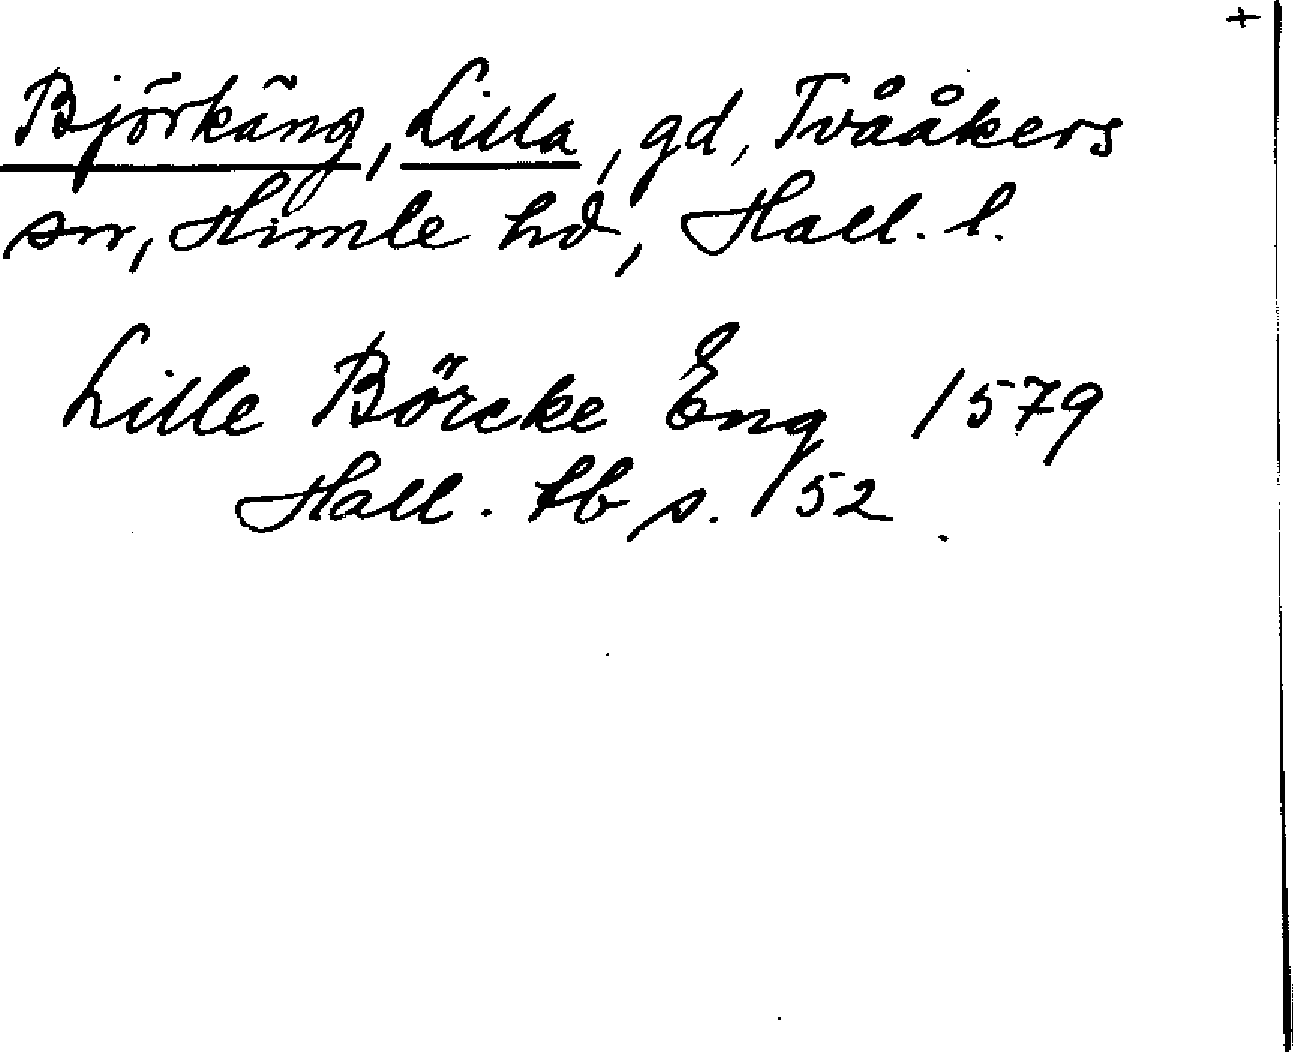 +
Björkäng, Lilla, gd, Tvååkers
sn, Himle hd, Hall. l.
Lille Börcke Eng 1579
Hall. tb s. 152